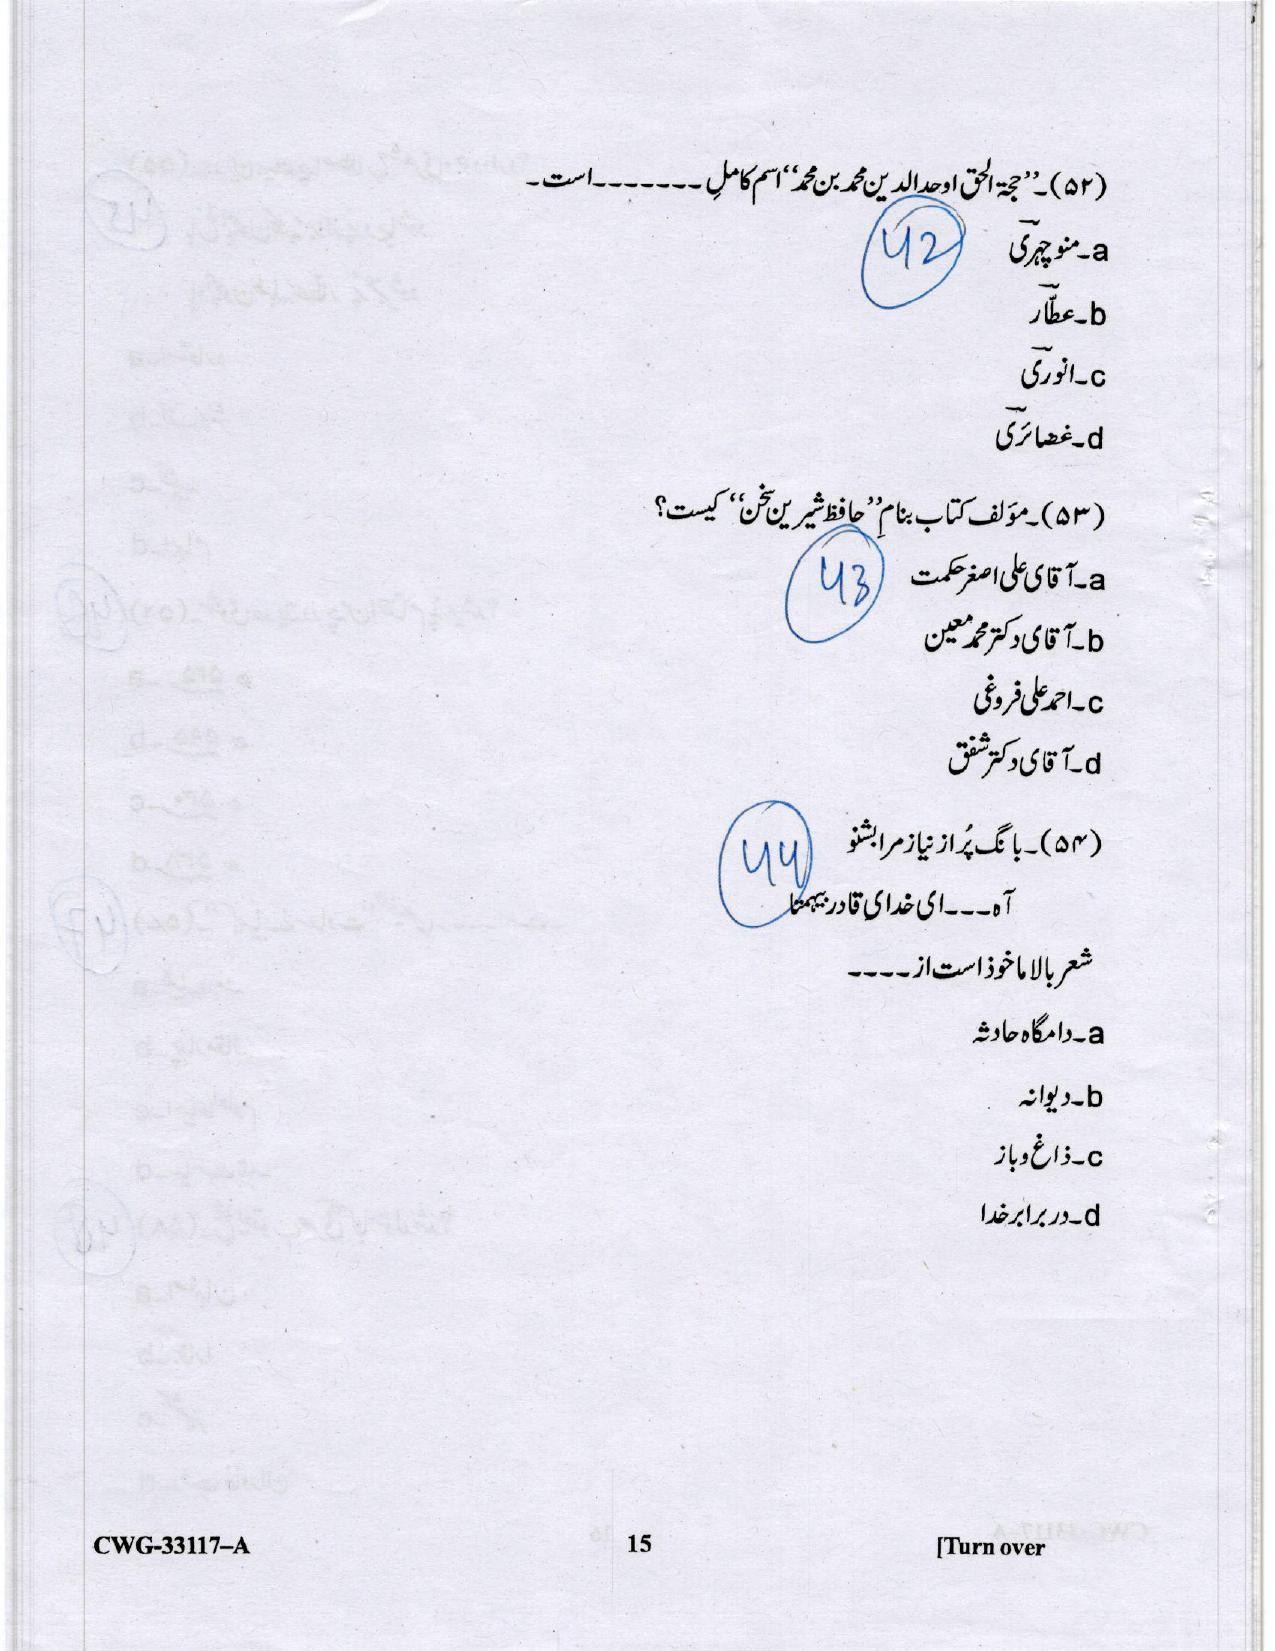 (۵۲)۔”حجۃ الحق اوحد الدین محمد بن محمد“ اسم کاملِ ۔۔۔۔۔۔۔است۔
a۔منوچہری
42
b۔عطّار
c۔انوری
d۔غضائری
(۵۳)۔مؤلف کتاب بنامِ ”حافظ شیرین سخن“ کیست؟
a۔آقای علی اصغر حکمت
43
b۔آقای دکتر محمد معین
c۔احمد علی فروغی
d۔آقای دکتر شفق
(۵۴)۔بانگ پُر از نیاز مرا بشنو
44
آہ۔۔۔ای خدای قادر بیہمتا
شعر بالا ماخوذ است از۔۔۔۔
a۔دامگاہ حادثہ
b۔دیوانہ
c۔ذاغ و باز
d۔در برابر خدا
CWG-33117–A 15 [Turn over